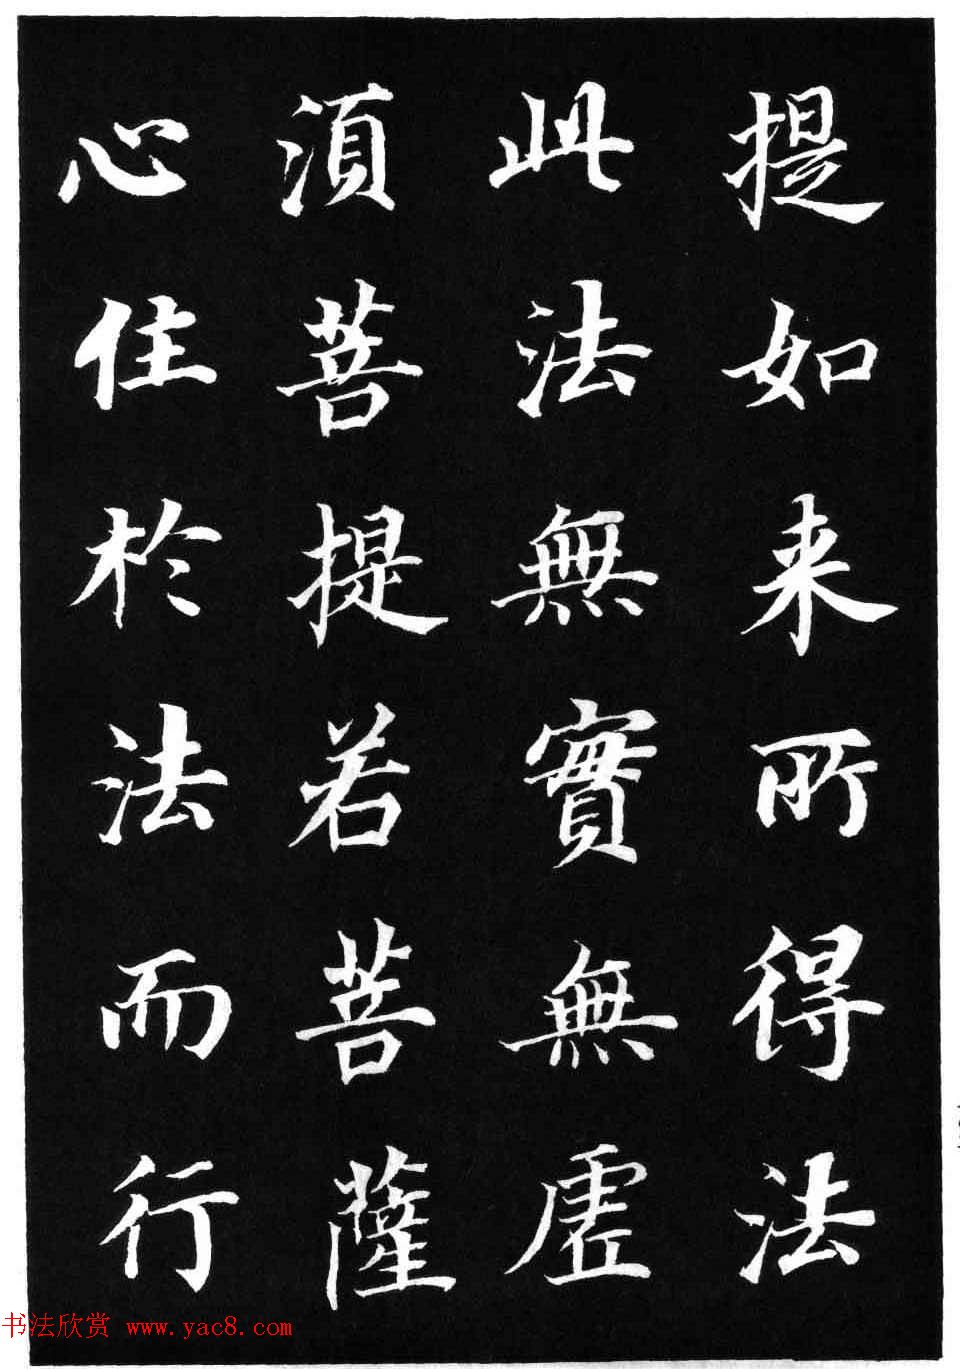 提如来所得法
此法無實無虛
湏菩提若菩薩
心住於法而行
书法欣赏 www.yac8.com